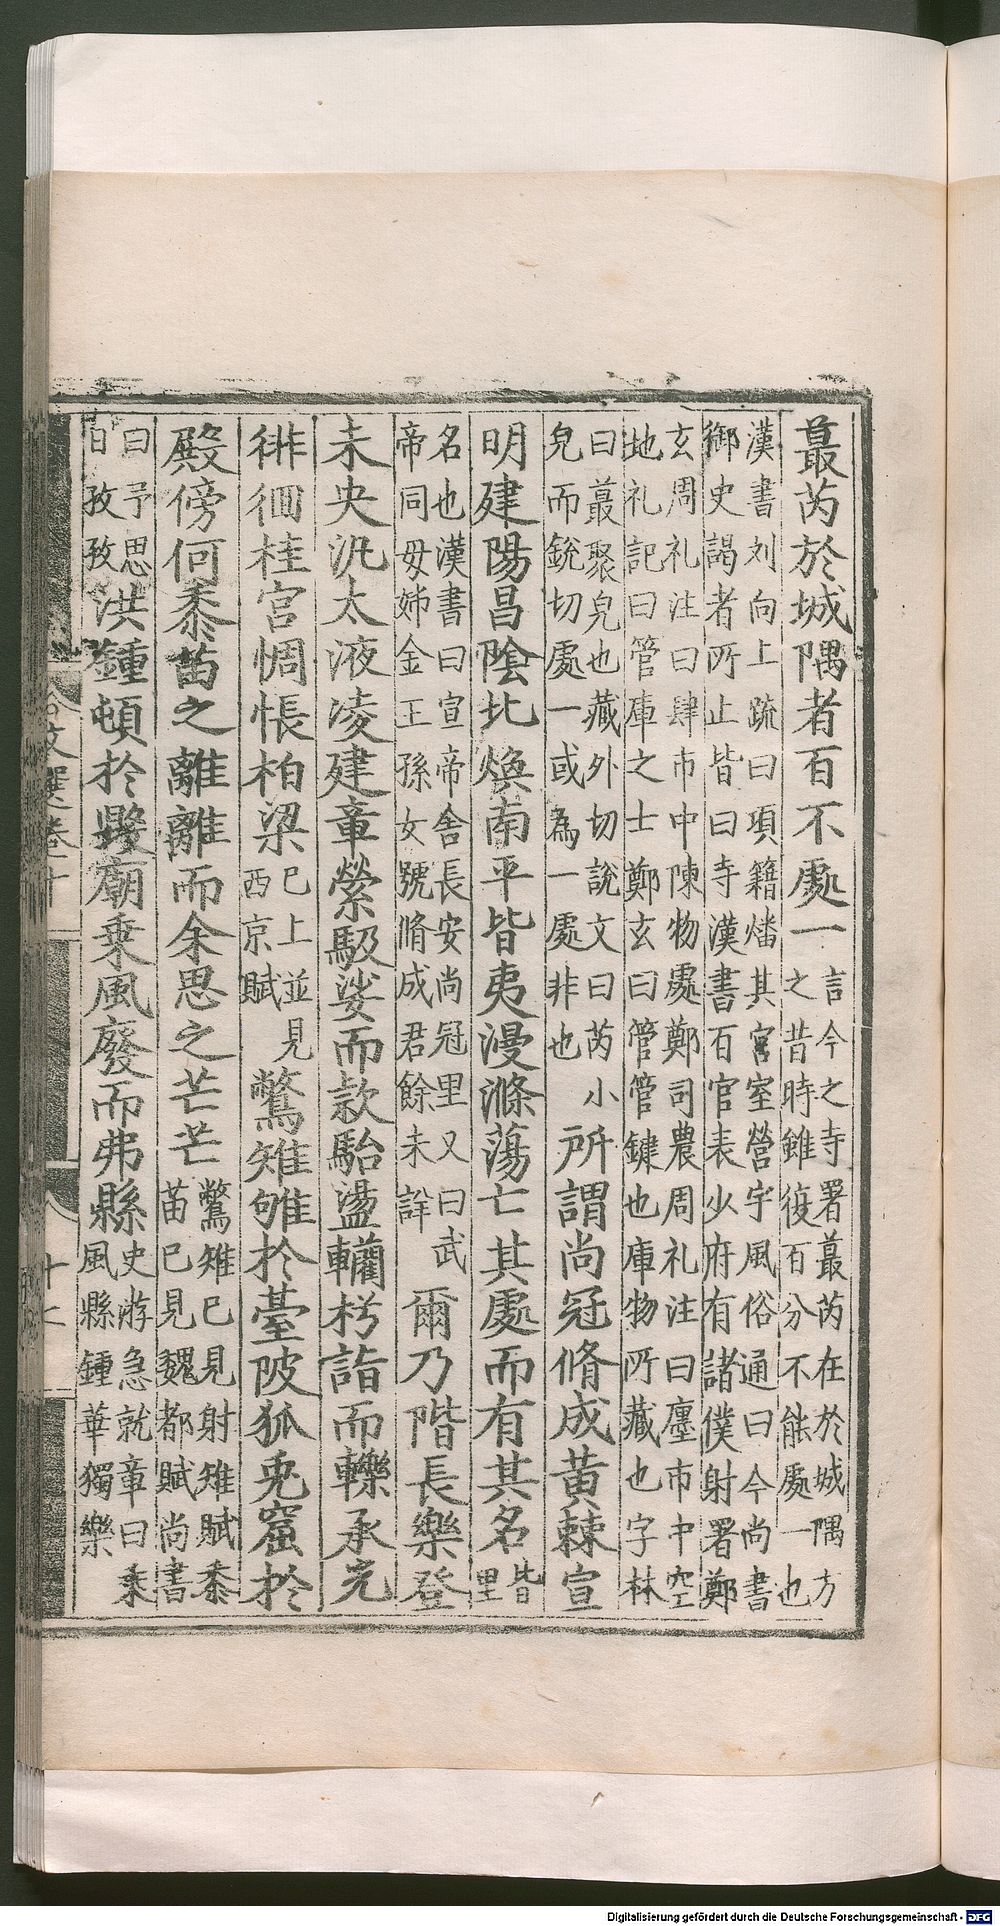 蕞芮於城隅者百不處一言今之寺署蕞芮在於城隅方
之昔時雖復百分不能處一也
漢書刘向上疏曰項籍燔其宮室營宇風俗通曰今尚書
御史謁者所止皆曰寺漢書百官表少府有諸僕射署鄭
玄周礼注曰肆市中陳物處鄭司農周礼注曰廛市中空
地礼記曰管庫之士鄭玄曰管管鍵也庫物所藏也字林
曰蕞聚皃也藏外切說文曰芮小
皃而銳切處一或為一處非也
所謂尚冠脩成黃棘宣
明建陽昌陰北煥南平皆夷漫滌蕩亡其處而有其名皆
里
名也漢書曰宣帝舍長安尚冠里又曰武
帝同母姊金王孫女號脩成君餘未詳
爾乃階長樂登
未央汎太液凌建章縈馺娑而款駘盪轥枍詣而轢承光
徘徊桂宮惆悵柏梁巳上並見
西京賦
驚雉雊於臺陂狐兎窟於
殿傍何黍苗之離離而余思之芒芒驚雉巳見射雉賦黍
苗巳見魏都賦尚書
曰予思
日孜孜
洪鍾頓於毀廟乗風廢而弗縣史游急就章曰乗
風縣鍾華獨樂
文選卷十
十七
Digitalisierung gefördert durch die Deutsche Forschungsgemeinschaft - DFG